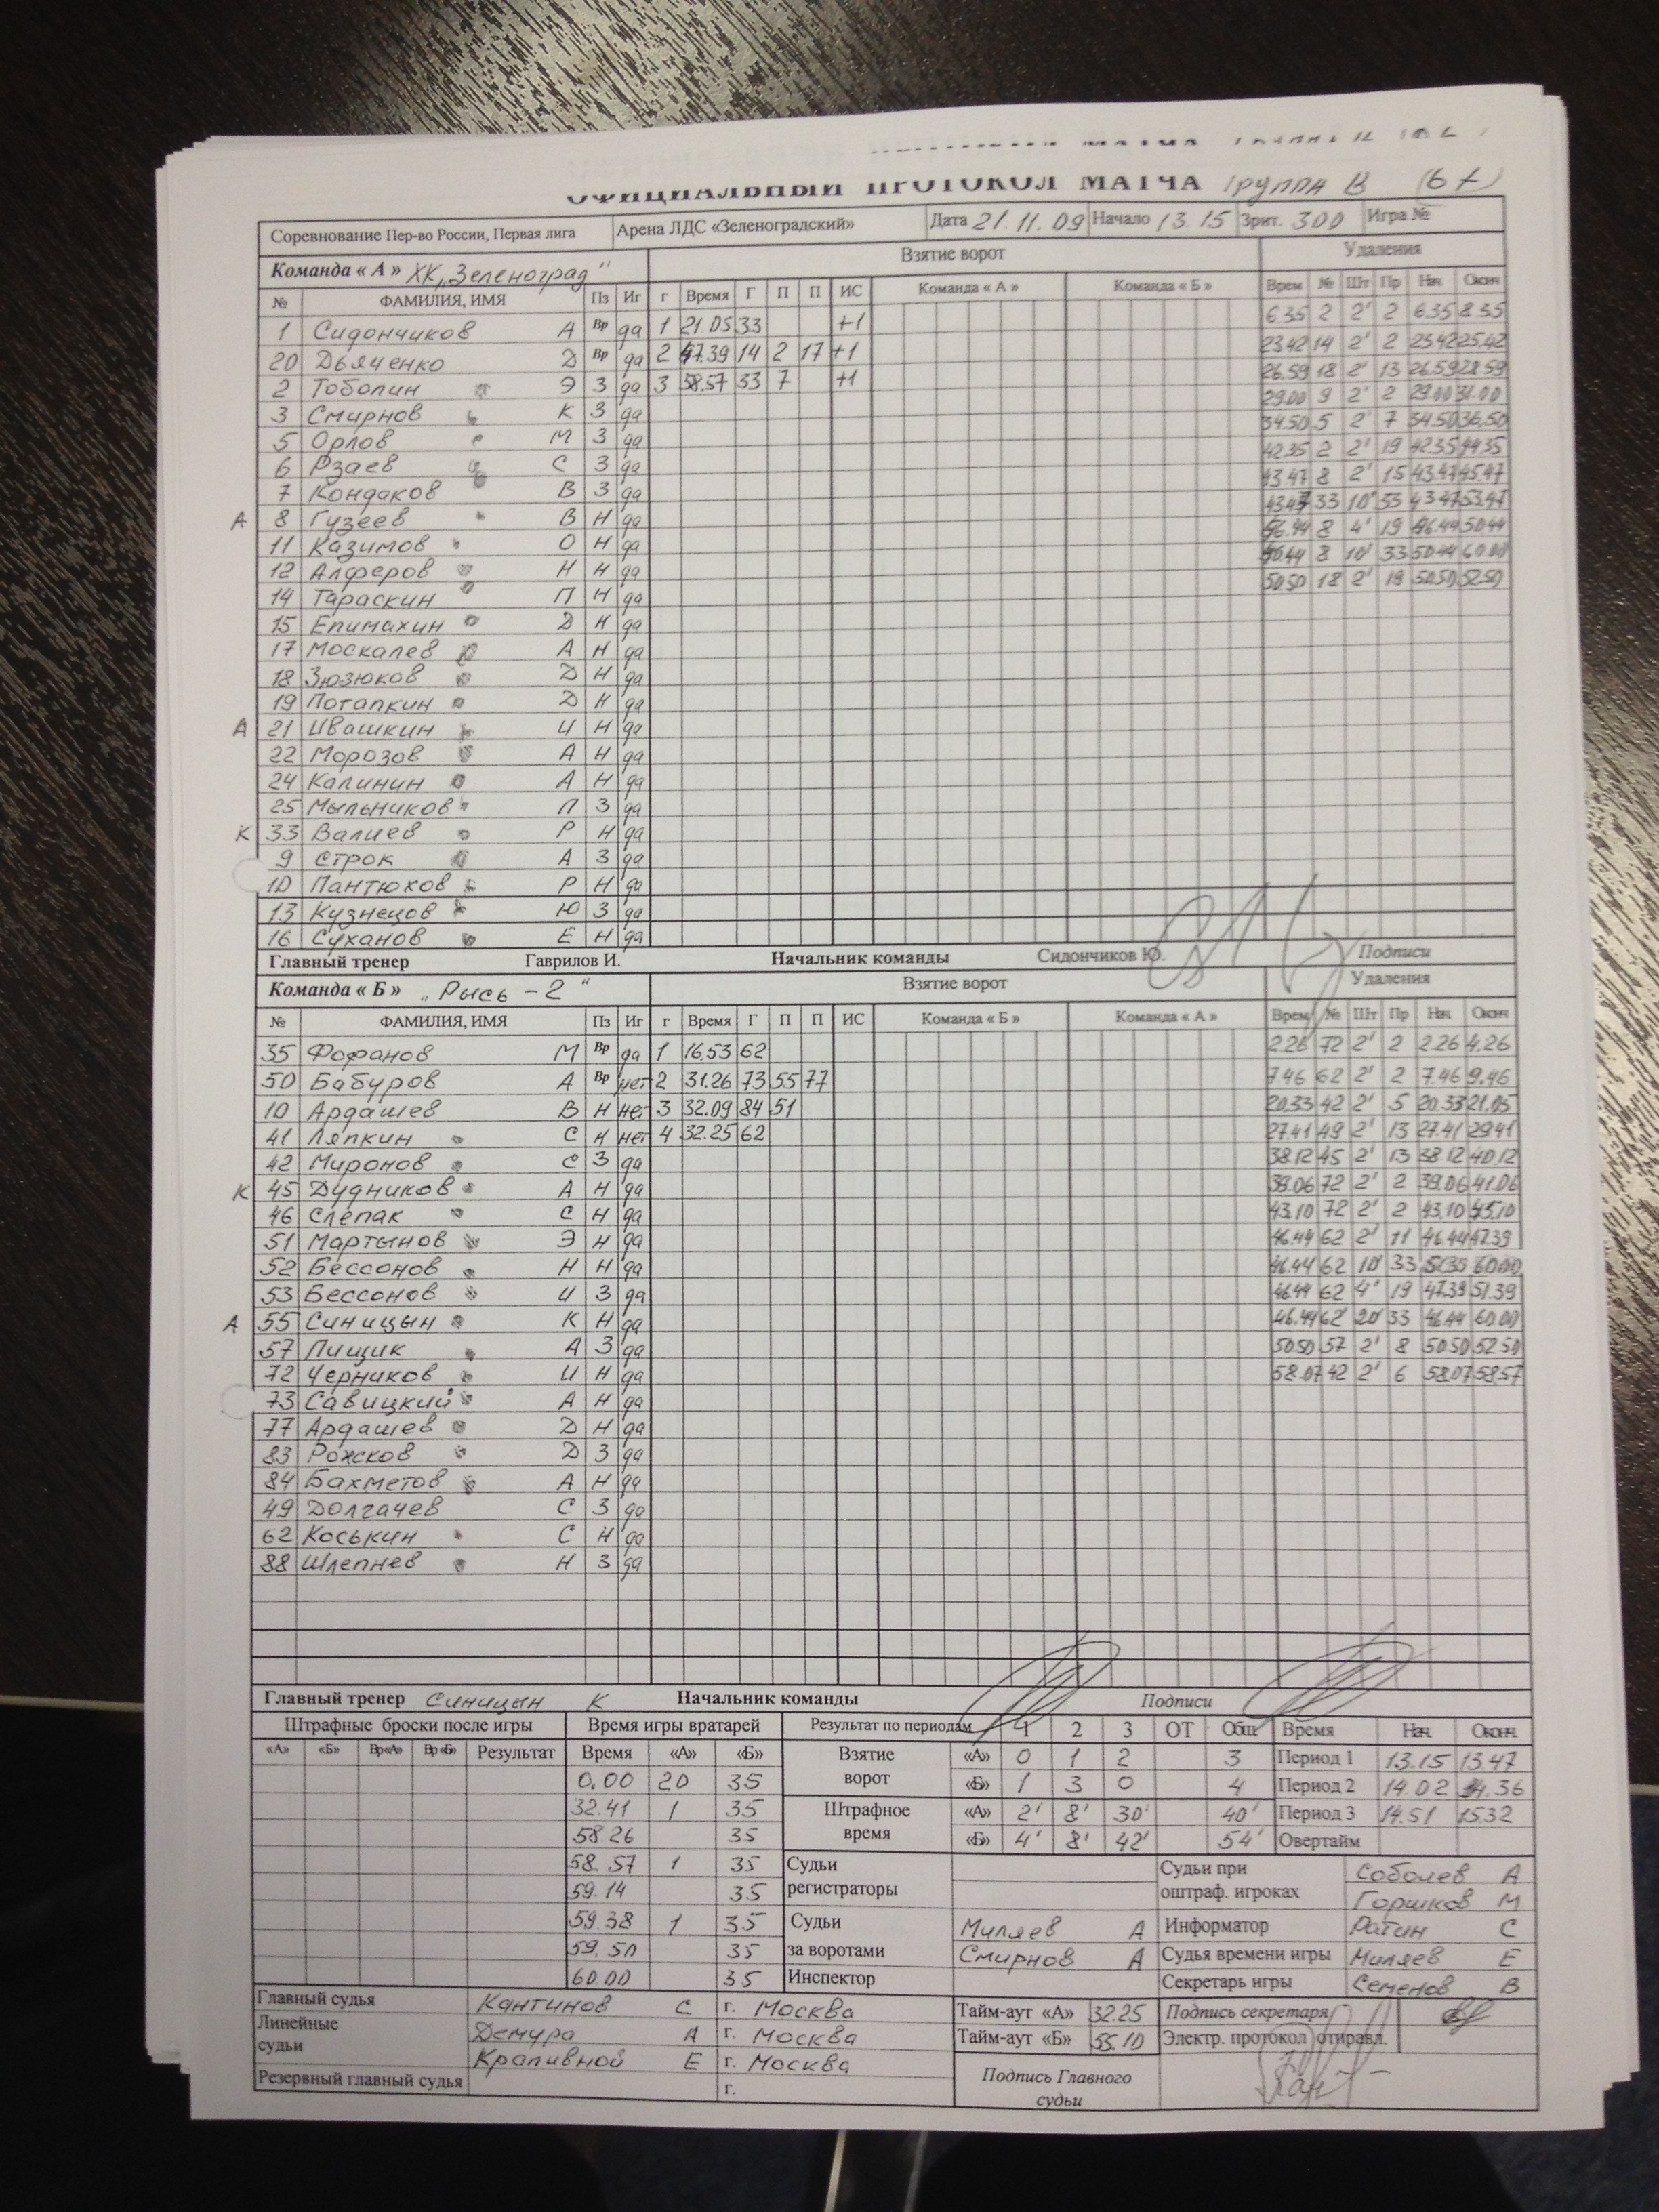 ОФИЦИАЛЬНЫЙ ПРОТОКОЛ МАТЧА группа В
Соревнование Пер-во России, Первая лига Арена ЛДС «Зеленоградский» Дата 21.11.09 Начало 13.15 Зрит. 300 Игра №
Команда « А » ХК „Зеленоград" Взятие ворот Удаления
№ ФАМИЛИЯ, ИМЯ Пз Иг г Время Г П П ИС Команда « А » Команда « Б » Врем № Шт Пр Нач Оконч
1 Сидончиков А Вр да 1 21.05 33 +1 6.35 2 2' 2 6.35 8.35
20 Дьяченко D Вр да 2 47.39 14 2 17 +1 23.42 14 2' 2 23.42 25.42
2 Тоболин Э З да 3 58.57 33 7 +1 26.59 18 2' 13 26.59 28.59
3 Смирнов К З да 29.00 9 2' 2 29.00 31.00
5 Орлов М З да 34.50 5 2' 7 34.50 36.50
6 Рзаев С З да 42.35 2 2' 19 42.35 44.35
7 Кондаков В З да 43.47 8 2' 15 43.47 45.47
А 8 Гузеев В Н да 43.47 33 10' 33 43.47 53.47
11 Казимов О Н да 46.44 8 4' 19 46.44 50.44
12 Алферов Н Н да 46.44 8 10' 33 50.44 60.00
14 Тараскин П Н да 50.50 18 2' 19 50.50 52.50
15 Епимахин D Н да
17 Москалев А Н да
18 Зюзюков D Н да
19 Потапкин D Н да
А 21 Ивашкин И Н да
22 Морозов А Н да
24 Калинин А Н да
25 Мыльников П З да
К 33 Валиев Р Н да
9 Строк А З да
10 Пантюхов Р Н да
13 Кузнецов Ю З да
16 Суханов Е Н да
Главный тренер Гаврилов И. Начальник команды Сидончиков Ю. Подписи
Команда « Б » „Рысь - 2" Взятие ворот Удаления
№ ФАМИЛИЯ, ИМЯ Пз Иг г Время Г П П ИС Команда « Б » Команда « А » Врем № Шт Пр Нач Оконч
35 Фофанов М Вр да 1 16.53 62 2.26 72 2' 2 2.26 4.26
50 Бабуров А Вр нет 2 31.26 73 55 77 7.46 62 2' 2 7.46 9.46
10 Ардашев В Н нет 3 32.09 84 51 20.33 42 2' 5 20.33 21.05
41 Ляпкин С Н нет 4 32.25 62 27.41 49 2' 13 27.41 29.41
42 Миронов С З да 38.12 45 2' 13 38.12 40.12
К 45 Дудников А Н да 39.06 72 2' 2 39.06 41.06
46 Слепак С Н да 43.10 72 2' 2 43.10 45.10
51 Мартынов Э Н да 46.44 62 2' 11 46.44 47.39
52 Бессонов Н Н да 46.44 62 10' 33 51.39 60.00
53 Бессонов И З да 46.44 62 4' 19 47.39 51.39
А 55 Синицын К Н да 46.44 62 20' 33 46.44 60.00
57 Пищик А З да 50.50 57 2' 8 50.50 52.50
72 Черников И Н да 58.07 42 2' 6 58.07 58.57
73 Савицкий А Н да
77 Ардашев D Н да
83 Рожков D З да
84 Бахметов А Н да
49 Долгачев С З да
62 Коськин С Н да
88 Шлепнев Н З да
Главный тренер Синицын К Начальник команды Подписи
Штрафные броски после игры Время игры вратарей Результат по периодам 1 2 3 ОТ Общ Время Нач. Оконч.
«А» «Б» Вр«А» Вр«Б» Результат Время «А» «Б» Взятие ворот «А» 0 1 2 3 Период 1 13.15 13.47
0.00 20 35 «Б» 1 3 0 4 Период 2 14.02 14.36
32.41 1 35 Штрафное время «А» 2' 8' 30' 40' Период 3 14.51 15.32
58.26 35 «Б» 4' 8' 42' 54' Овертайм
58.57 1 35 Судьи регистраторы Судьи при оштраф. игроках Соболев А
59.14 35 Горшков М
59.38 1 35 Судьи за воротами Миляев А Информатор Ратин С
59.50 35 Смирнов А Судья времени игры Миляев Е
60.00 35 Инспектор Секретарь игры Семенов В
Главный судья Кантинов С г. Москва Тайм-аут «А» 32.25 Подпись секретаря
Линейные судьи Демура А г. Москва Тайм-аут «Б» 55.10 Электр. протокол отправл.
Крапивной Е г. Москва Подпись Главного судьи
Резервный главный судья г.